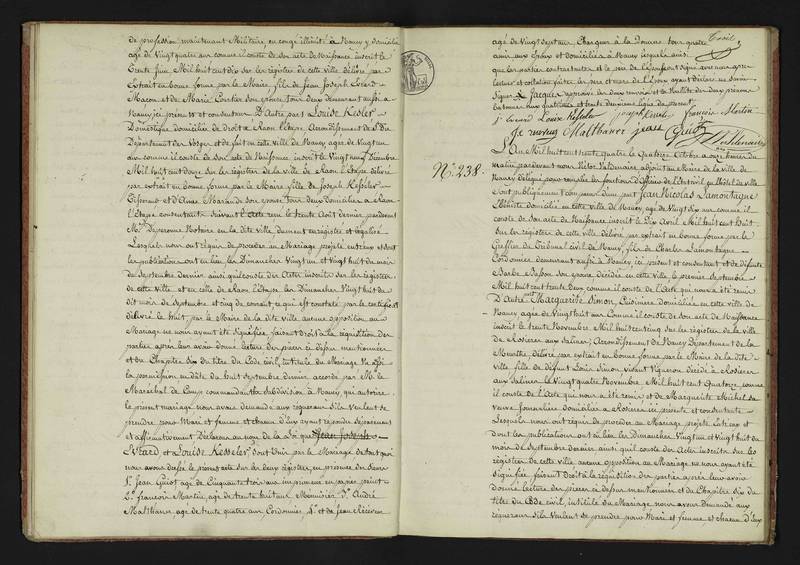 de profession maintenant Militaire, en congé illimité à Nancy y domicilié
agé de Vingt quatre ans comme il conste de son acte de Naissance inscrit le
Trente Juin Mil huit cent dix sur les régistres de cette ville délivré par
Extrait en bonne forme par le Maire, fils de Jean Joseph Evrard
Macon et de Marie Courtier son épouse tous deux demeurant aussi à
Nancy, ici présens et consentans D'Autre part Louise Kesler
Domestique domiciliée de Droit à Raon l'étape Arrondissement de St Dié
Département des Vosges et de fait en cette ville de Nancy agée de Vingt un
ans comme il conste de son acte de Naissance inscrit le Vingt neuf Decembre
Mil huit cent douze sur les régistres de la ville de Raon l'Etape délivré
par extrait en bonne forme par le Maire fille de Joseph Kessler
et d'Anne son épouse tous deux Domiciliés à Raon
l'Etape consentans suivant l'acte reçu le trente Août dernier pardevant
Me Notaire en la dite ville dument enregistré et légalisé
Lesquels nous ont réquis de procéder au Mariage projeté entr'eux et dont
les publications ont eu lieu les Dimanches Vingt un et Vingt huit du mois
de Septembre dernier ainsi qu'il conste des Actes inscrits sur les régistres
de cette ville et en celle de Raon l'Etape les Dimanches Vingt huit du
dit mois de Septembre et cinq du courant ce qui est constaté par le certificat
délivré le huit, par le Maire de la dite ville aucune opposition au
Mariage ne nous ayant été signifiée faisant droit à la réquisition des
parties après leur avoir donné lecture des pièces ci dessus mentionnées
et du Chapitre Six du titre du Code civil, intitulé du Mariage Vu aussi
la permission en date du huit Septembre dernier accordé par Mr le
Maréchal de Camp commandant la Subdivision à Nancy, qui autorise
le présent mariage nous avons demandé aux réquerans s'ils veulent se
prendre pour Mari et femme et chacun d'eux ayant répondu séparément
et affirmativement Déclarons au nom de la Loi que Jean Joseph
Evrard et Louise Kessler, sont Unis par le Mariage de tout quoi
nous avons dressé le présent acte sur les deux régistres, en présence des Sieurs
1o Jean Guiot agé de Cinquante trois ans imprimeur en papier peint
2o François Martin, agé de trente huit ans Menuisier 3o André
Malthanner agé de trente quatre ans Cordonnier 4o et de Jean
agé de Vingt sept ans Chargeur à la Douane tous quatre
amis aux Epoux et domiciliés à Nancy lesquels ainsi
que les parties contractantes et le père de l'Epoux ont signé avec nous après
lecture et collation faites les père et mère de l'Epoux ayant déclaré ne savoir
signer
j. Evrard Louise Kessler françois Martin
Malthaner jean Guiot
Valdenaire
No 238.
L'An Mil huit cent trente quatre le Quatorze Octobre à onze heures du
matin pardevant nous Victor Valdenaire adjoint au Maire de la ville de
Nancy délégué pour remplir les fonctions d'officier de l'Etat civil en l'hôtel de ville
sont publiquement comparus d'une part Jean Nicolas Lamontagne
Ebéniste domicilié en cette ville de Nancy, agé de Vingt six ans comme il
conste de son acte de Naissance inscrit le Dix Avril Mil huit cent huit
Sur les régistres de cette ville délivré par extrait en bonne forme par le
Greffier du Tribunal civil de Nancy, fils de Charles Lamontagne
Cordonnier demeurant aussi à Nancy, ici présent et consentant et de défunte
Barbe son épouse décédée en cette ville le premier Septembre
Mil huit cent trente deux comme il conste de l'acte qui nous a été remis
D'Autre part Marguerite Simon, Cuisinière domiciliée en cette ville de
Nancy agée de Vingt huit ans comme il conste de son acte de Naissance
inscrit le trente Novembre Mil huit cent cinq sur les régistres de la ville
de Rosières aux Salines, Arrondissement de Nancy Département de la
Meurthe, délivré par extrait en bonne forme par le Maire de la dite
ville fille de défunt Louis Simon vivant Vigneron décédé à Rosières
aux Salines le Vingt quatre Novembre Mil huit cent Quatorze comme
il conste de l'Acte qui nous a été remis et de Marguerite Michel sa
veuve Journalière domiciliée à Rosières ici présente et consentante
Lesquels nous ont réquis de procéder au Mariage projeté entr'eux et
dont les publications ont eu lieu les Dimanches Vingt un et Vingt huit du
mois de Septembre dernier ainsi qu'il conste des Actes inscrits sur les
régistres de cette ville aucune opposition au Mariage ne nous ayant été
signifiée faisant Droit à la réquisition des parties après leur avoir
donné lecture des pièces ci dessus mentionnées et du Chapitre Six du
titre du Code civil, intitulé du Mariage nous avons demandé aux
réquerans s'ils veulent se prendre pour Mari et femme et chacun d'eux